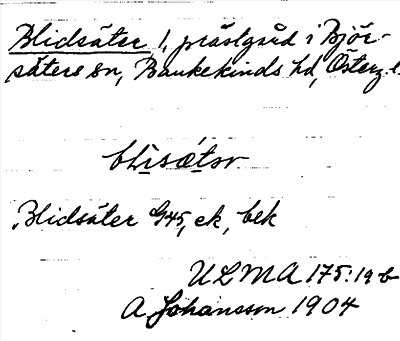 Blidsäter 1, prästgård i Björ-
säters sn, Bankekinds hd, Österg. l.
blisætsr
Blidsäter G45, ek, bek
ULMA 175:19 b
A Johansson 1904